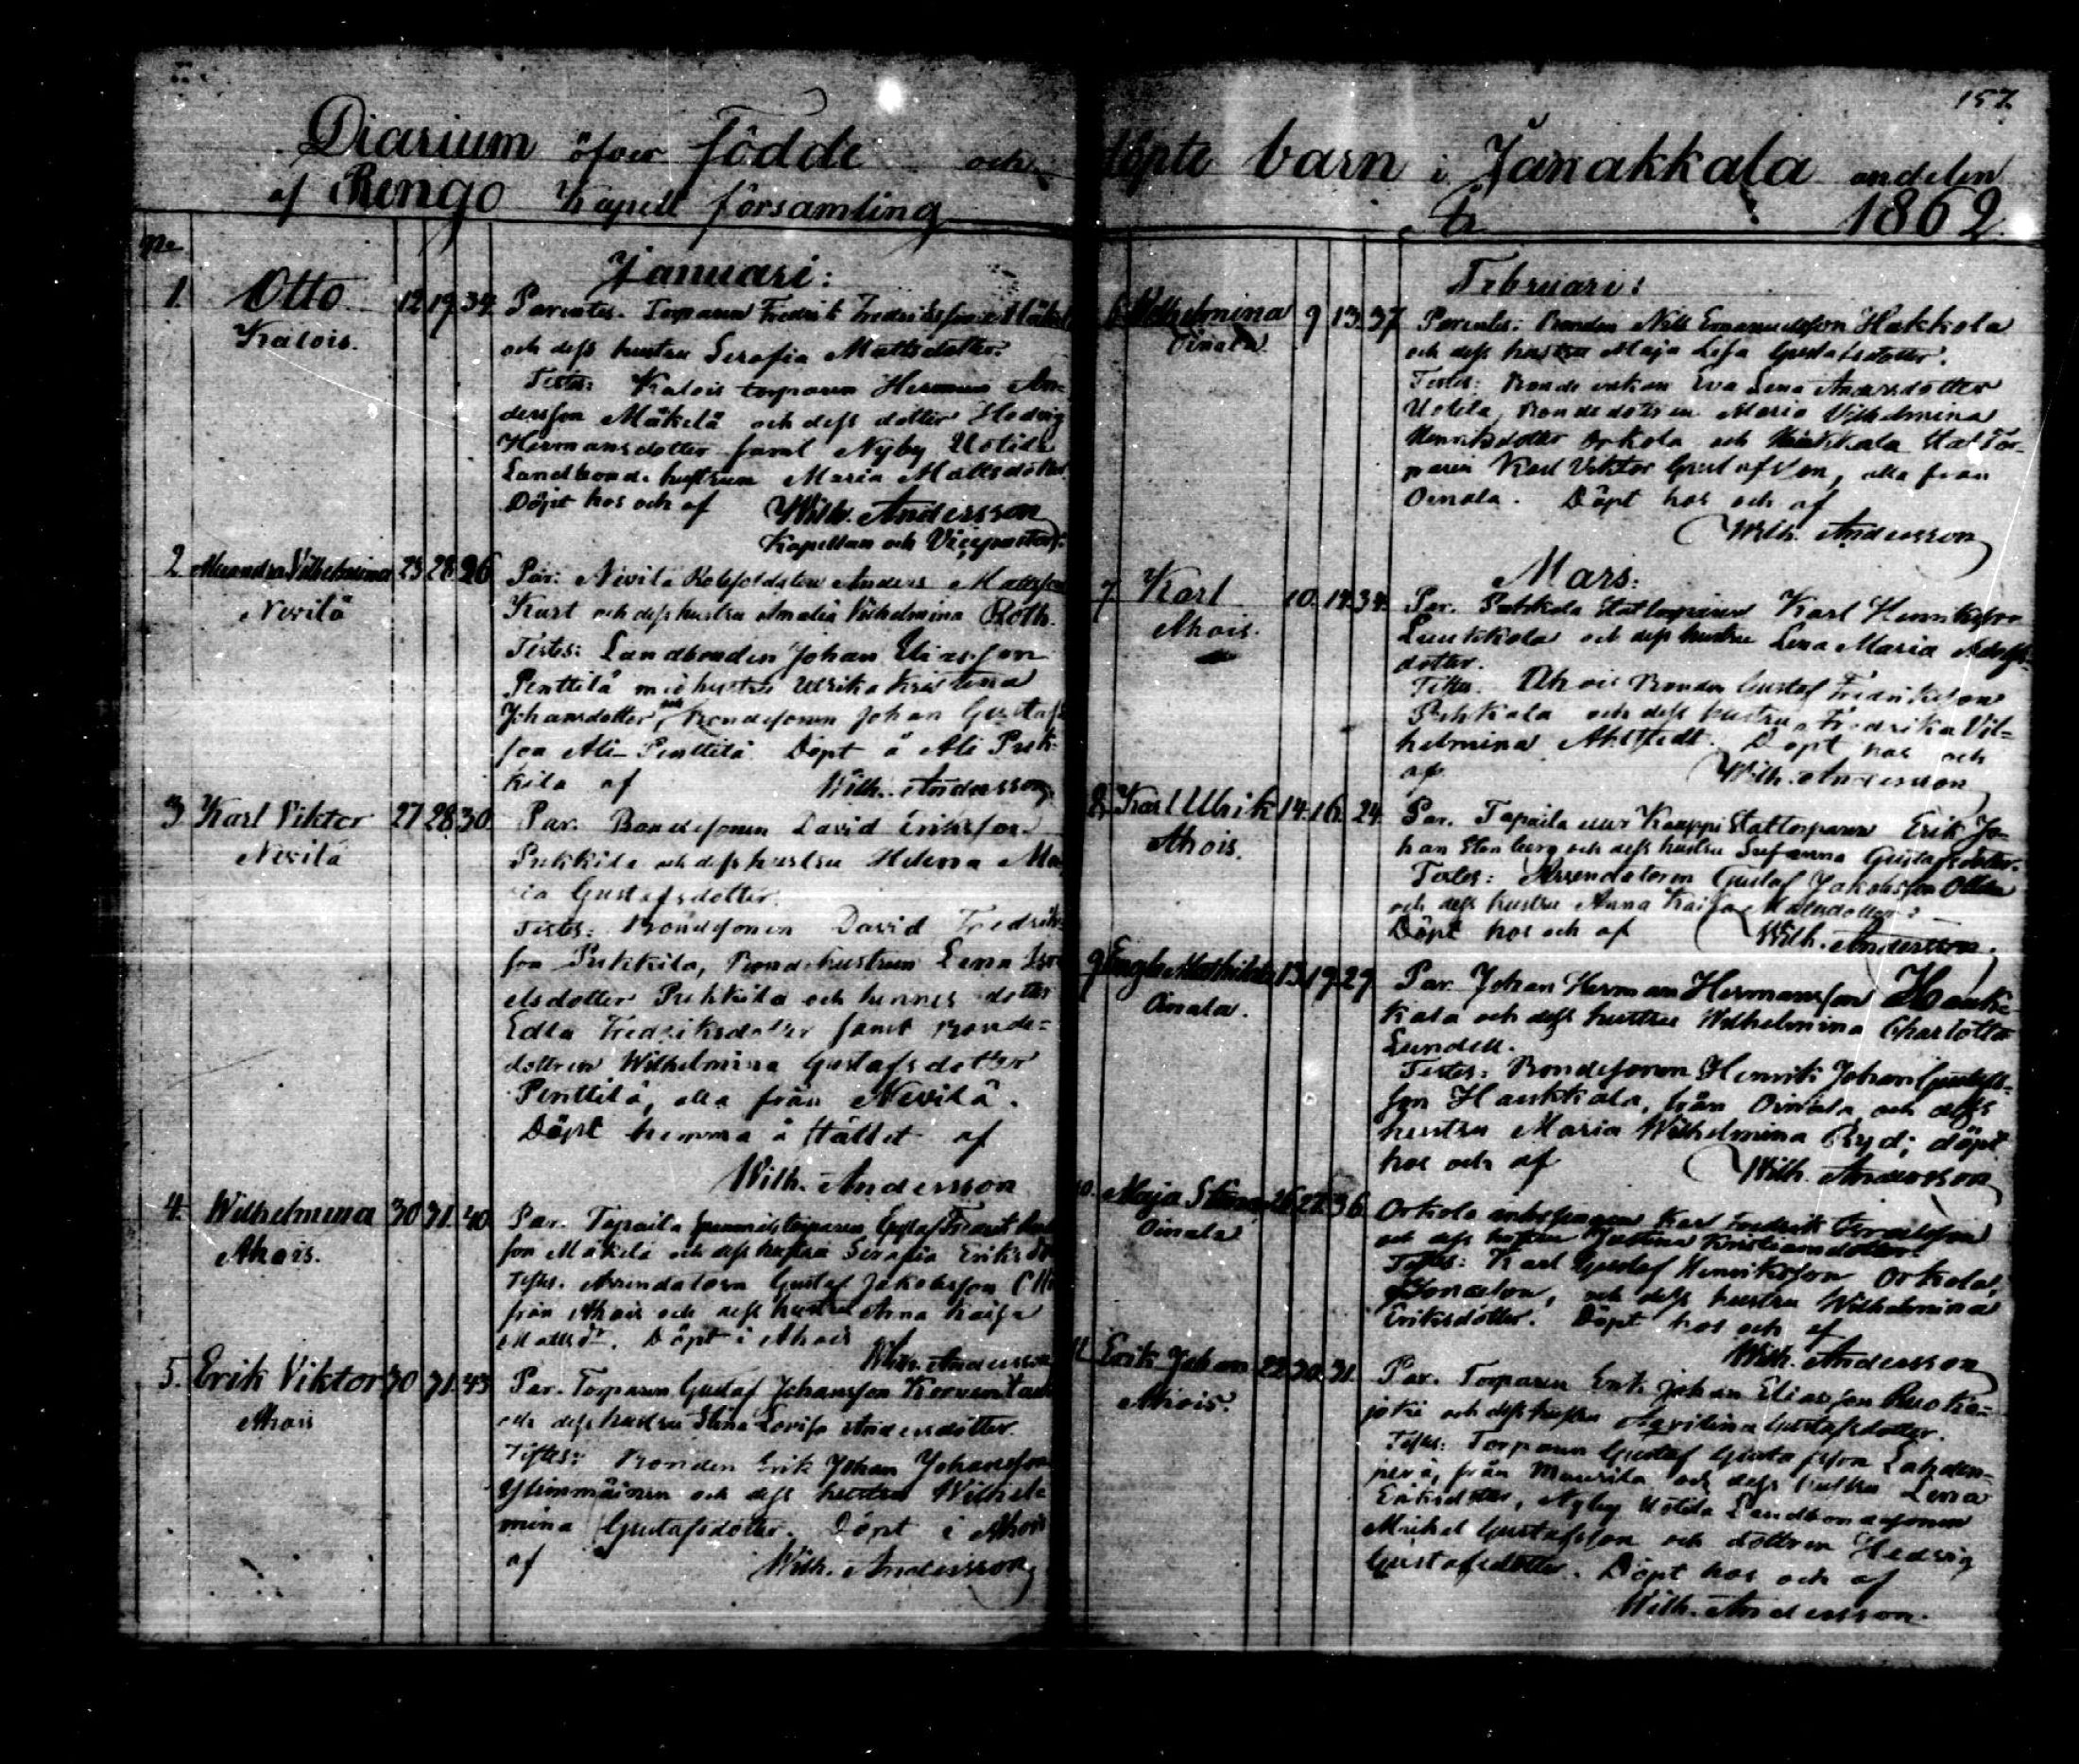 157.
Diarium öfver födde och döpte barn i Janakkala andelen
af Rengo Kapell församling År 1862
No
Januari:
1. Otto 12 19. 34. Parentes. Torparen Fredrik Fredriksson
Kalois. och dess hustru Serafia Mattsdotter.
Testes: Kalois torparen Herman An-
dersson Mäkelä och dess dotter Hedvig
Hermansdotter samt Nyby Uotila
Landbonde hustrun Maria Mattsdotter.
Döpt hos och af Wilh. Andersson
Kapellan och Vicepastor.
2 Alexandra Vilhelmina 23 28. 26 Par: Nevilä Anders Mattsson
Nevilä och dess hustru Amalia Vilhelmina Roth.
Testes: Landbonden Johan Eliasson
Penttilä med hustru Ulrika Kristina
Johansdotter, och Bondesonen Johan Gustafs-
son Ali-Penttilä. Döpt å Ali
af Wilh. Andersson
3 Karl Viktor 27 28. 30. Par. Bondesonen David Eriksson
Nevilä Pukkila och dess hustru Helena Ma-
ria Gustafsdotter.
Testes: Bondesonen David Fredriks-
son Pukkila, Bondehustrun Lena Isra-
elsdotter Pukkila och hennes dotter
Edla Fredriksdotter samt Bonde-
dottren Wilhelmina Gustafsdotter
Penttilä, alla från Nevilä.
Döpt hemma å stället af
Wilh. Andersson
4. Wilhelmina 30 31. 40 Par. Tapaila Gustaf
Ahois. son Mäkelä och dess hustru Serafia Eriksdo
Testes. Arrendatorn Gustaf Jakobsson
från Ahois och dess hustru Anna Kaisa
Döpt i Ahois
Wilh. Andersson
5. Erik Viktor 30 31. 43 Par. Torparen Gustaf Johansson
Ahois och dess hustru Stina Lovisa Andersdotter.
Testes: Bonden Erik Johan Johansson
och dess hustru Wilhel-
mina Gustafsdotter. Döpt i Ahois
af Wilh. Andersson
Februari:
6 Wilhelmina 9 13. 37 Parentes: Bonden Nils Emanuelsson Hakkola
Oinala. och dess hustru Maja Lisa Gustafsdotter.
Testes: Bonde enkan Eva Lena Andersdotter
Uotila, Bondedottren Maria Vilhelmina
Henriksdotter Orkola och Tor-
paren Karl Viktor Gustafsson, alla från
Oinala. Döpt hos och af
Wilh. Andersson
Mars:
7 Karl 10. 14. 34. Par. Karl Henriksson
Ahois. och dess hustru Lena Maria Adolfs-
dotter.
Testes. Ahois Bonden Gustaf Fredriksson
och dess hustru Fredrika Vil-
helmina Ahlstedt. Döpt hos och
af Wilh. Andersson
8. Karl Ulrik 14. 16. 24. Par. Tapaila Kauppi Erik Jo-
Ahois. han Stenberg och dess hustru Susanna Gustafsdotter.
Testes: Arrendatorn Gustaf Jakobsson
och dess hustru Anna Kaisa Mattsdotter.
Döpt hos och af Wilh. Andersson.
9 Mathilda 13. 19. 29. Par. Johan Herman Hermansson Hauk-
Oinala. kala och dess hustru Wilhelmina Charlotta
Lundell.
Testes: Bondesonen Henrik Johan Gustafs-
son Haukkala, från Oinala och dess
hustru Maria Wilhelmina Ryd; döpt
hos och af Wilh. Andersson
10. Maja Stina 26 27. 36 Orkola Karl Fredrik
Oinala och dess hustru Justina Kristiansdotter.
Testes: Karl Gustaf Henriksson Orkola,
och dess hustru Wilhelmina
Eriksdotter. Döpt hos och af
Wilh. Andersson
11 Erik Johan 22 30. 31. Par. Torparen Erik Johan Eliasson Ruoka-
Ahois. joki och dess hustru Gustafsdotter.
Testes: Torparen Gustaf Gustafsson Lahden-
perä, från och dess hustru Lena
Eriksdotter, Nyby Uotila Landbondesonen
Mickel Gustafsson och dottren Hedvig
Gustafsdotter. Döpt hos och af
Wilh. Andersson.